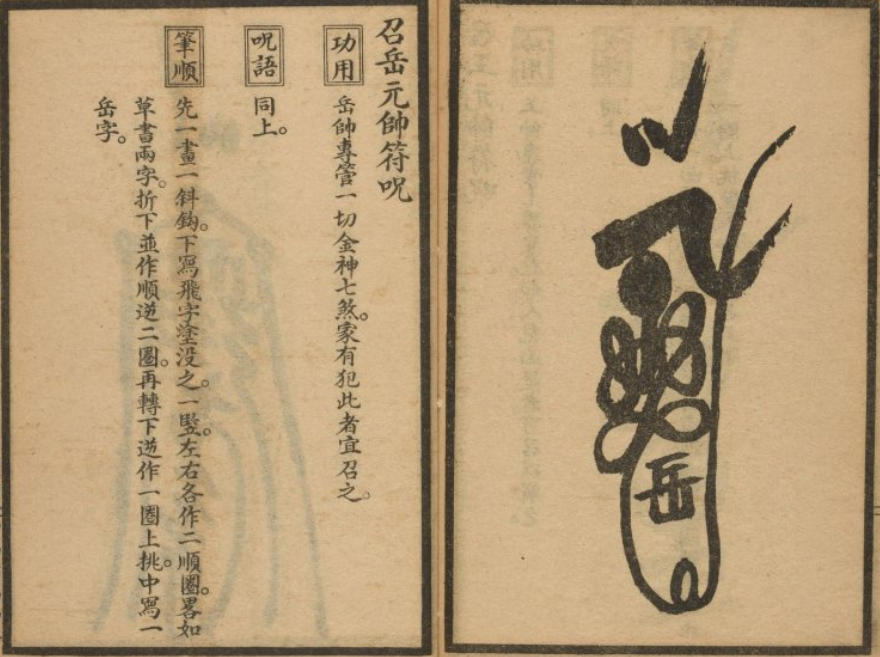 召岳元帥符咒
功用
岳帥專管一切金神七煞。家有犯此者宜召之。
呪語
同上。
筆順
先一畫一斜鈎。下寫飛字塗没之。一豎左右各作二順圈。畧如
草書兩字。折下並作順逆二圈。再轉下逆作一圈上挑。中寫一
岳字。
岳